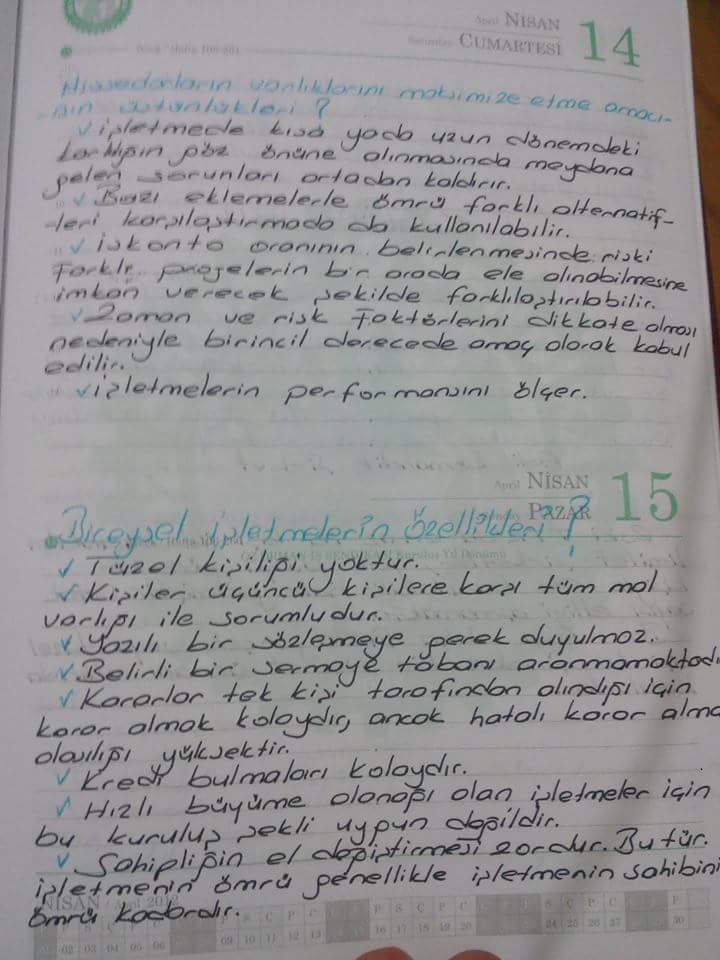 April NİSAN 14
CUMARTESİ
Hissedarların varlıklarını maksimize etme amacı-
nın üstünlükleri?
✓ işletmede kısa yada uzun dönemdeki
karlılığın göz önüne alınmasında meydana
gelen sorunları ortadan kaldırır.
✓ Bazı eklemelerle ömrü farklı alternatif-
leri karşılaştırmada da kullanılabilir.
✓ İskonto oranının belirlenmesinde riski
farklı projelerin bir arada ele alınabilmesine
imkan verecek şekilde farklılaştırılabilir.
✓ Zaman ve risk faktörlerini dikkate alması
nedeniyle birincil derecede amaç olarak kabul
edilir.
✓ işletmelerin performansını ölçer.
April NİSAN 15
PAZAR
Bireysel işletmelerin özellikleri?
✓ Tüzel kişiliği yoktur.
✓ Kişiler üçüncü kişilere karşı tüm mal
varlığı ile sorumludur.
✓ Yazılı bir sözleşmeye gerek duyulmaz.
✓ Belirli bir sermaye tabanı aranmamaktadı
✓ Kararlar tek kişi tarafından alındığı için
karar almak kolaydır, ancak hatalı karar alma
olasılığı yüksektir.
✓ Kredi bulmaları kolaydır.
✓ Hızlı büyüme olanağı olan işletmeler için
bu kuruluş şekli uygun değildir.
✓ Sahipliğin el değiştirmesi zordur. Bu tür.
işletmenin ömrü genellikle işletmenin sahibini
ömrü kadardır.
NİSAN / April 2012
P S Ç P C
02 03 04 05 06
09 10 11 12 13
16 17 18 19 20
24 25 26 27
30